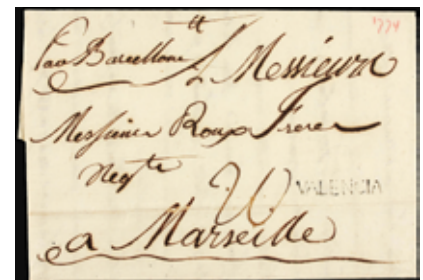 1774
Par Barcellone
A Messieurs
Messieurs Roux Freres
Negts
VALENCIA
a Marseille